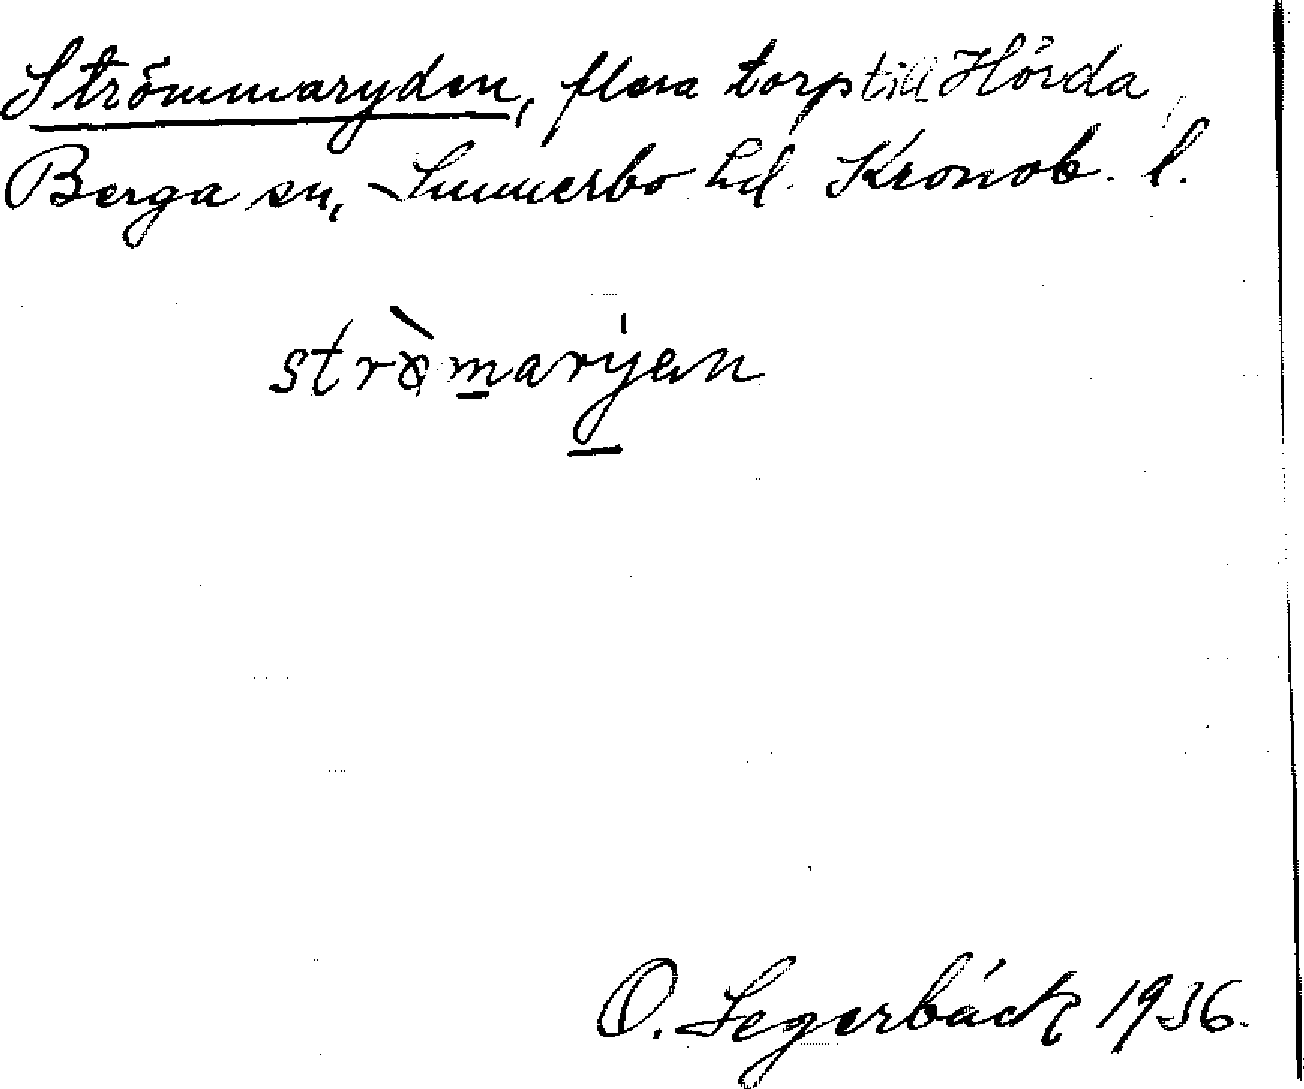 Strömmaryden, flera torp till Hörda,
Berga sn, Sunnerbo hd. Kronob. l.
strömaryen
O. Segerbäck 1936.